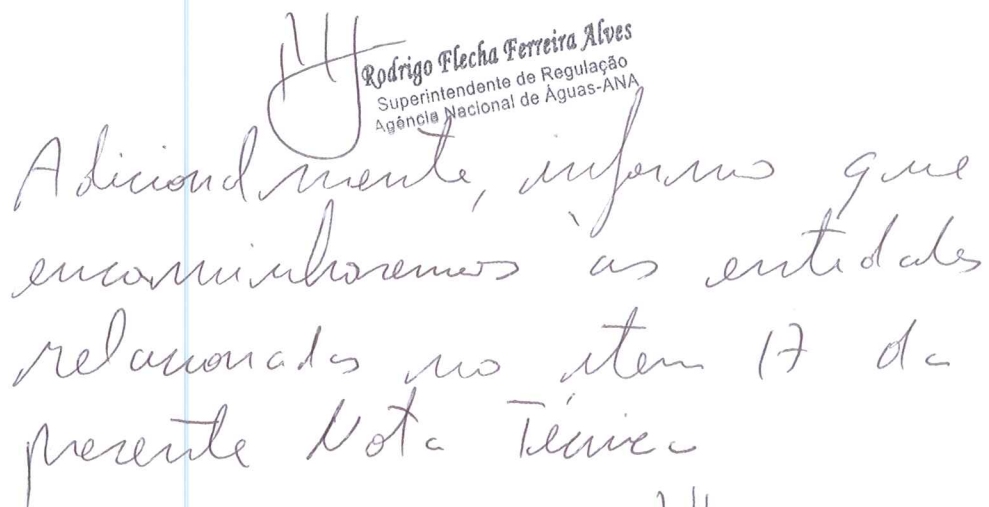 Rodrigo Flecha Ferreira Alves
Superintendente de Regulação
Agência Nacional de Águas-ANA
Adicionalmente, informo que
encaminharemos às entidades
relacionadas no item 17 da
presente Nota Técnica